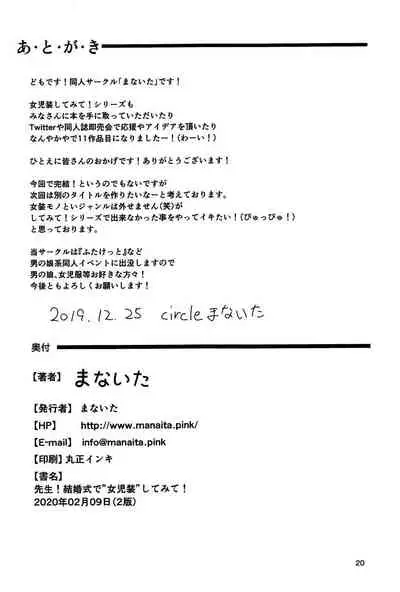 あ・と・が・き
どもです！同人サークル「まないた」です！
女児装してみて！シリーズも
みなさんに本を手に取っていただいたり
Twitterや同人誌即売会で応援やアイデアを頂いたり
なんやかやで11作品目になりましたー！（わーい！）
ひとえに皆さんのおかげです！ありがとうございます！
今回で完結！というのでもないですが
次回は別のタイトルを作りたいなーと考えております。
女装モノというジャンルは外せません（笑）が
してみて！シリーズで出来なかった事をやってイキたい！（ぴゅっぴゅ！）
と思っております。
当サークルは『ふたけっと』など
男の娘系同人イベントに出没しますので
男の娘、女児服等お好きな方々！
今後ともよろしくお願いします！
2019.12.25 circleまないた
奥付
【著者】 まないた
【発行者】 まないた
【HP】 http://www.manaita.pink/
【E-mail】 info@manaita.pink
【印刷】丸正インキ
【書名】
先生！結婚式で"女児装"してみて！
2020年02月09日（2版）
20